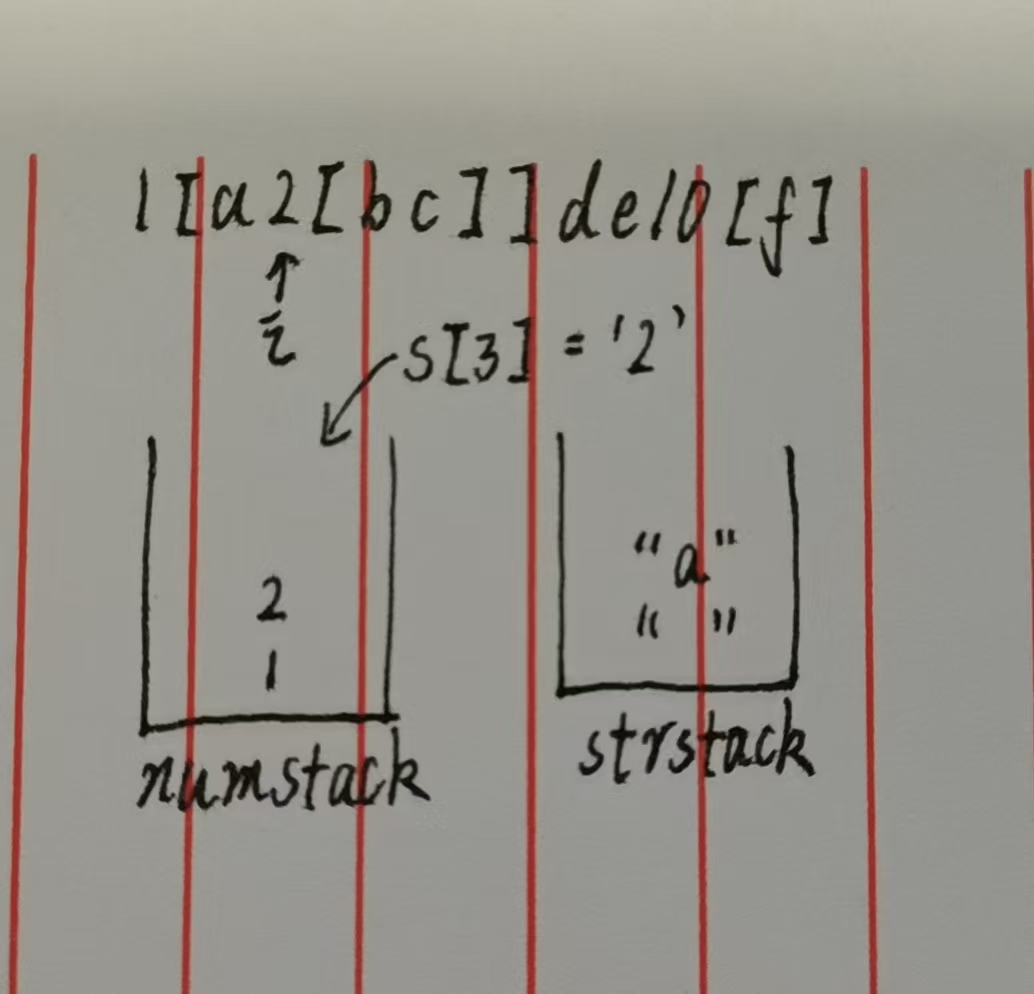 1[a2[bc]]de10[f]
↑
i
s[3] = '2'
2
1
numstack
"a"
" "
strstack